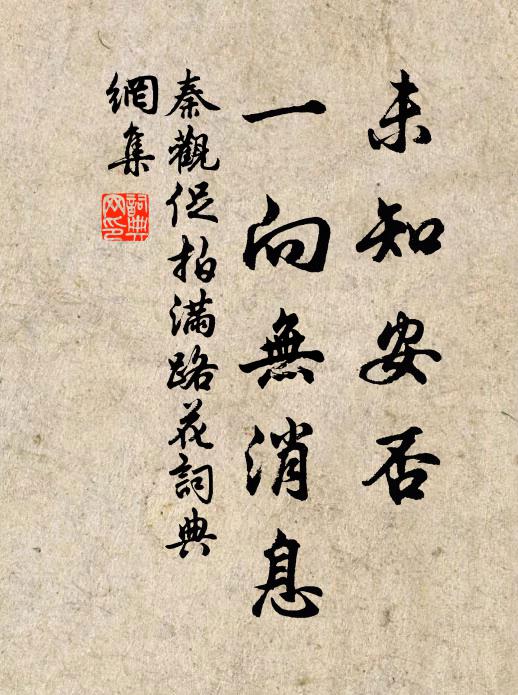 未知安否
一向無消息
秦觀促拍滿路花詞典
網集
詞典
网印